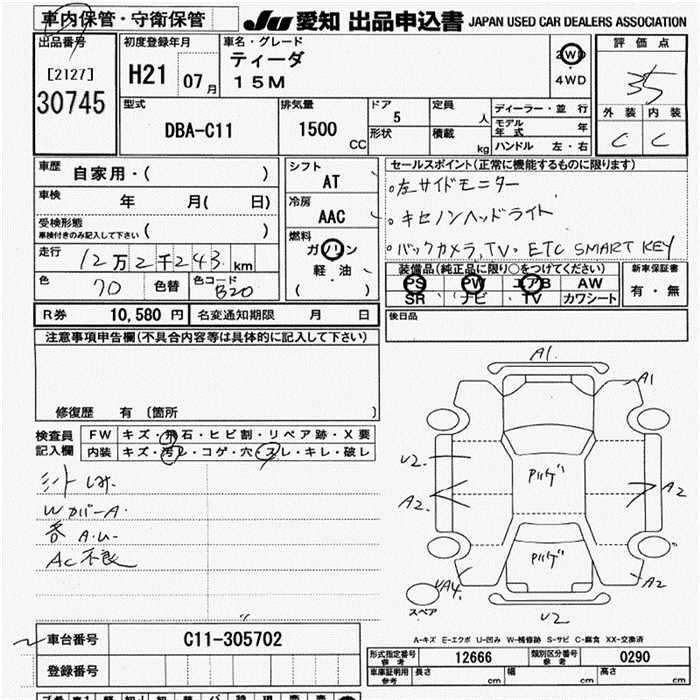 車内保管・守衛保管
JU 愛知 出品申込書 JAPAN USED CAR DEALERS ASSOCIATION
出品番号
[2127]
30745
初度登録年月
H21 07月
車名・グレード
ティーダ
15M
2WD
・
4WD
評価点
3.5
外装 内装
C C
型式
DBA-C11
排気量
1500 CC
ドア
5
形状
定員 人
積載 kg
ディーラー・並行
モデル年式 年
ハンドル 左・右
車歴 自家用・( )
車検 年 月( 日)
受検形態
車検付きのみ記入して下さい ( )
走行 12万2千243 km
色 70 色替 色コード B20
シフト
AT
冷房
AAC
燃料
ガソリン
軽・油
( )
セールスポイント(正常に機能するものに限ります)
。左サイドモニター
。キセノンヘッドライト
。バックカメラ,TV。ETC SMART KEY
装備品(純正品に限り○をつけてください)
PS PW エアB AW
SR ナビ TV カワシート
新車保証書
有・無
R券 10,580円 名変通知期限 月 日
後日品
注意事項申告欄(不具合内容等は具体的に記入して下さい)
修復歴 有 〔箇所 〕
検査員
記入欄
FW キズ・飛石・ヒビ割・リペア跡・X要
内装 キズ・汚レ・コゲ・穴・スレ・キレ・破レ
シート しみ.
Wカバー A.
各 A.U.
AC不良
A1.
A1
U2.
A2
Pハゲ
A2
Pハゲ
UA4.
スペア
A2
U2
A-キズ E-エクボ U-凹み W-補修跡 S-サビ C-腐食 XX-交換済
車台番号 C11-305702
登録番号
形式指定番号
参考 12666
類別区分番号
参考 0290
車庫証明用
参考 長さ cm 幅 cm 高さ cm